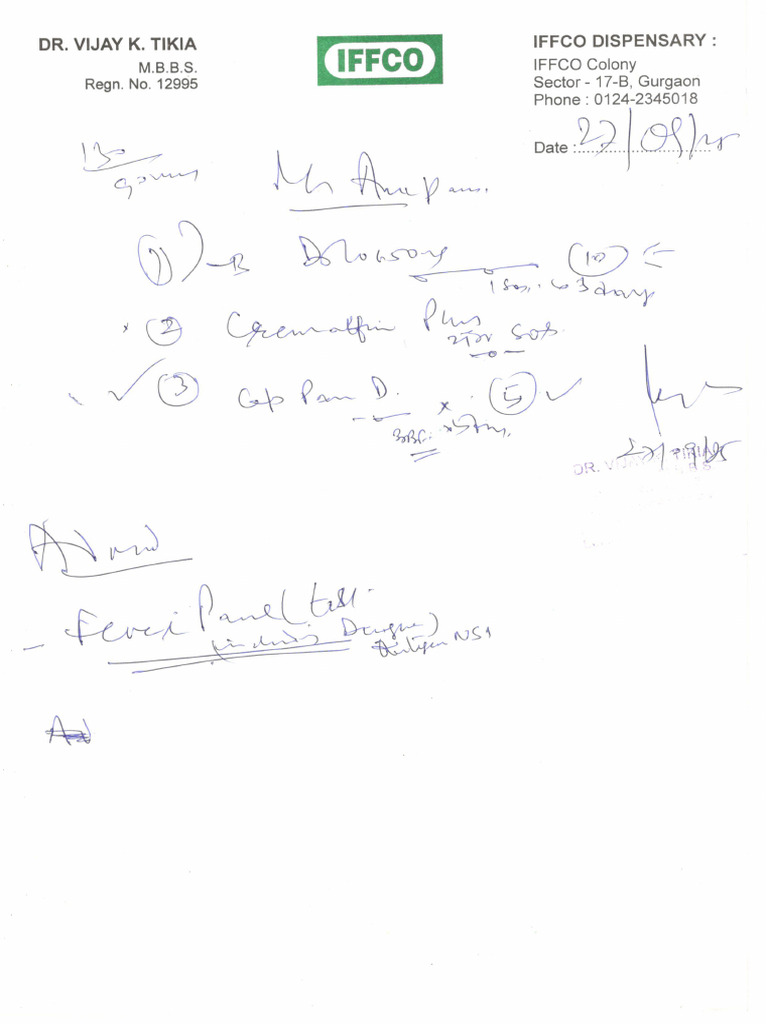 DR. VIJAY K. TIKIA
M.B.B.S.
Regn. No. 12995
IFFCO
IFFCO DISPENSARY :
IFFCO Colony
Sector - 17-B, Gurgaon
Phone : 0124-2345018
Date : 27/09/25
130
Mr Anupam.
① 10
3 days
② Cremaffin Plus
SOS
③ Cap Pan D. x 5
BBF. x 5 days.
27/09/25
DR. VIJAY
Advised
- Fever Panel (test
Dengue)
Antigen NS1